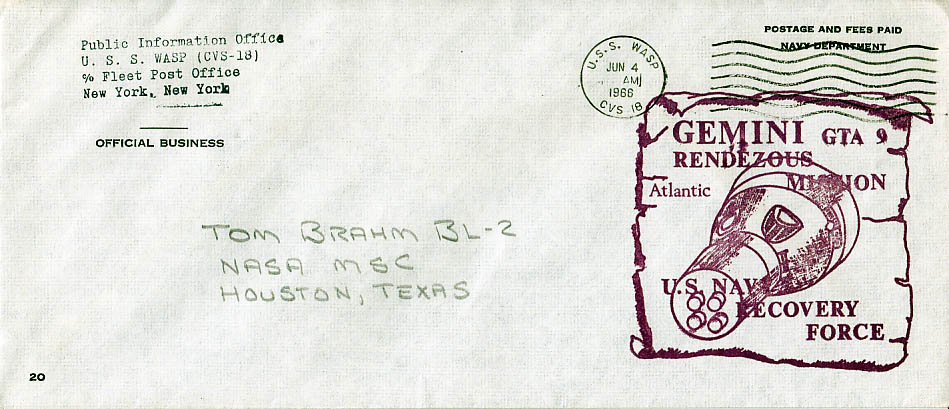 Public Information Office
U. S. S. WASP (CVS-18)
℅ Fleet Post Office
New York, New York
OFFICIAL BUSINESS
POSTAGE AND FEES PAID
NAVY DEPARTMENT
U.S.S. WASP
JUN 4
AM
1966
CVS 18
GEMINI GTA 9
RENDEZOUS
MISSION
Atlantic
U.S. NAVY
RECOVERY
FORCE
TOM BRAHM BL-2
NASA MSC
HOUSTON, TEXAS
20